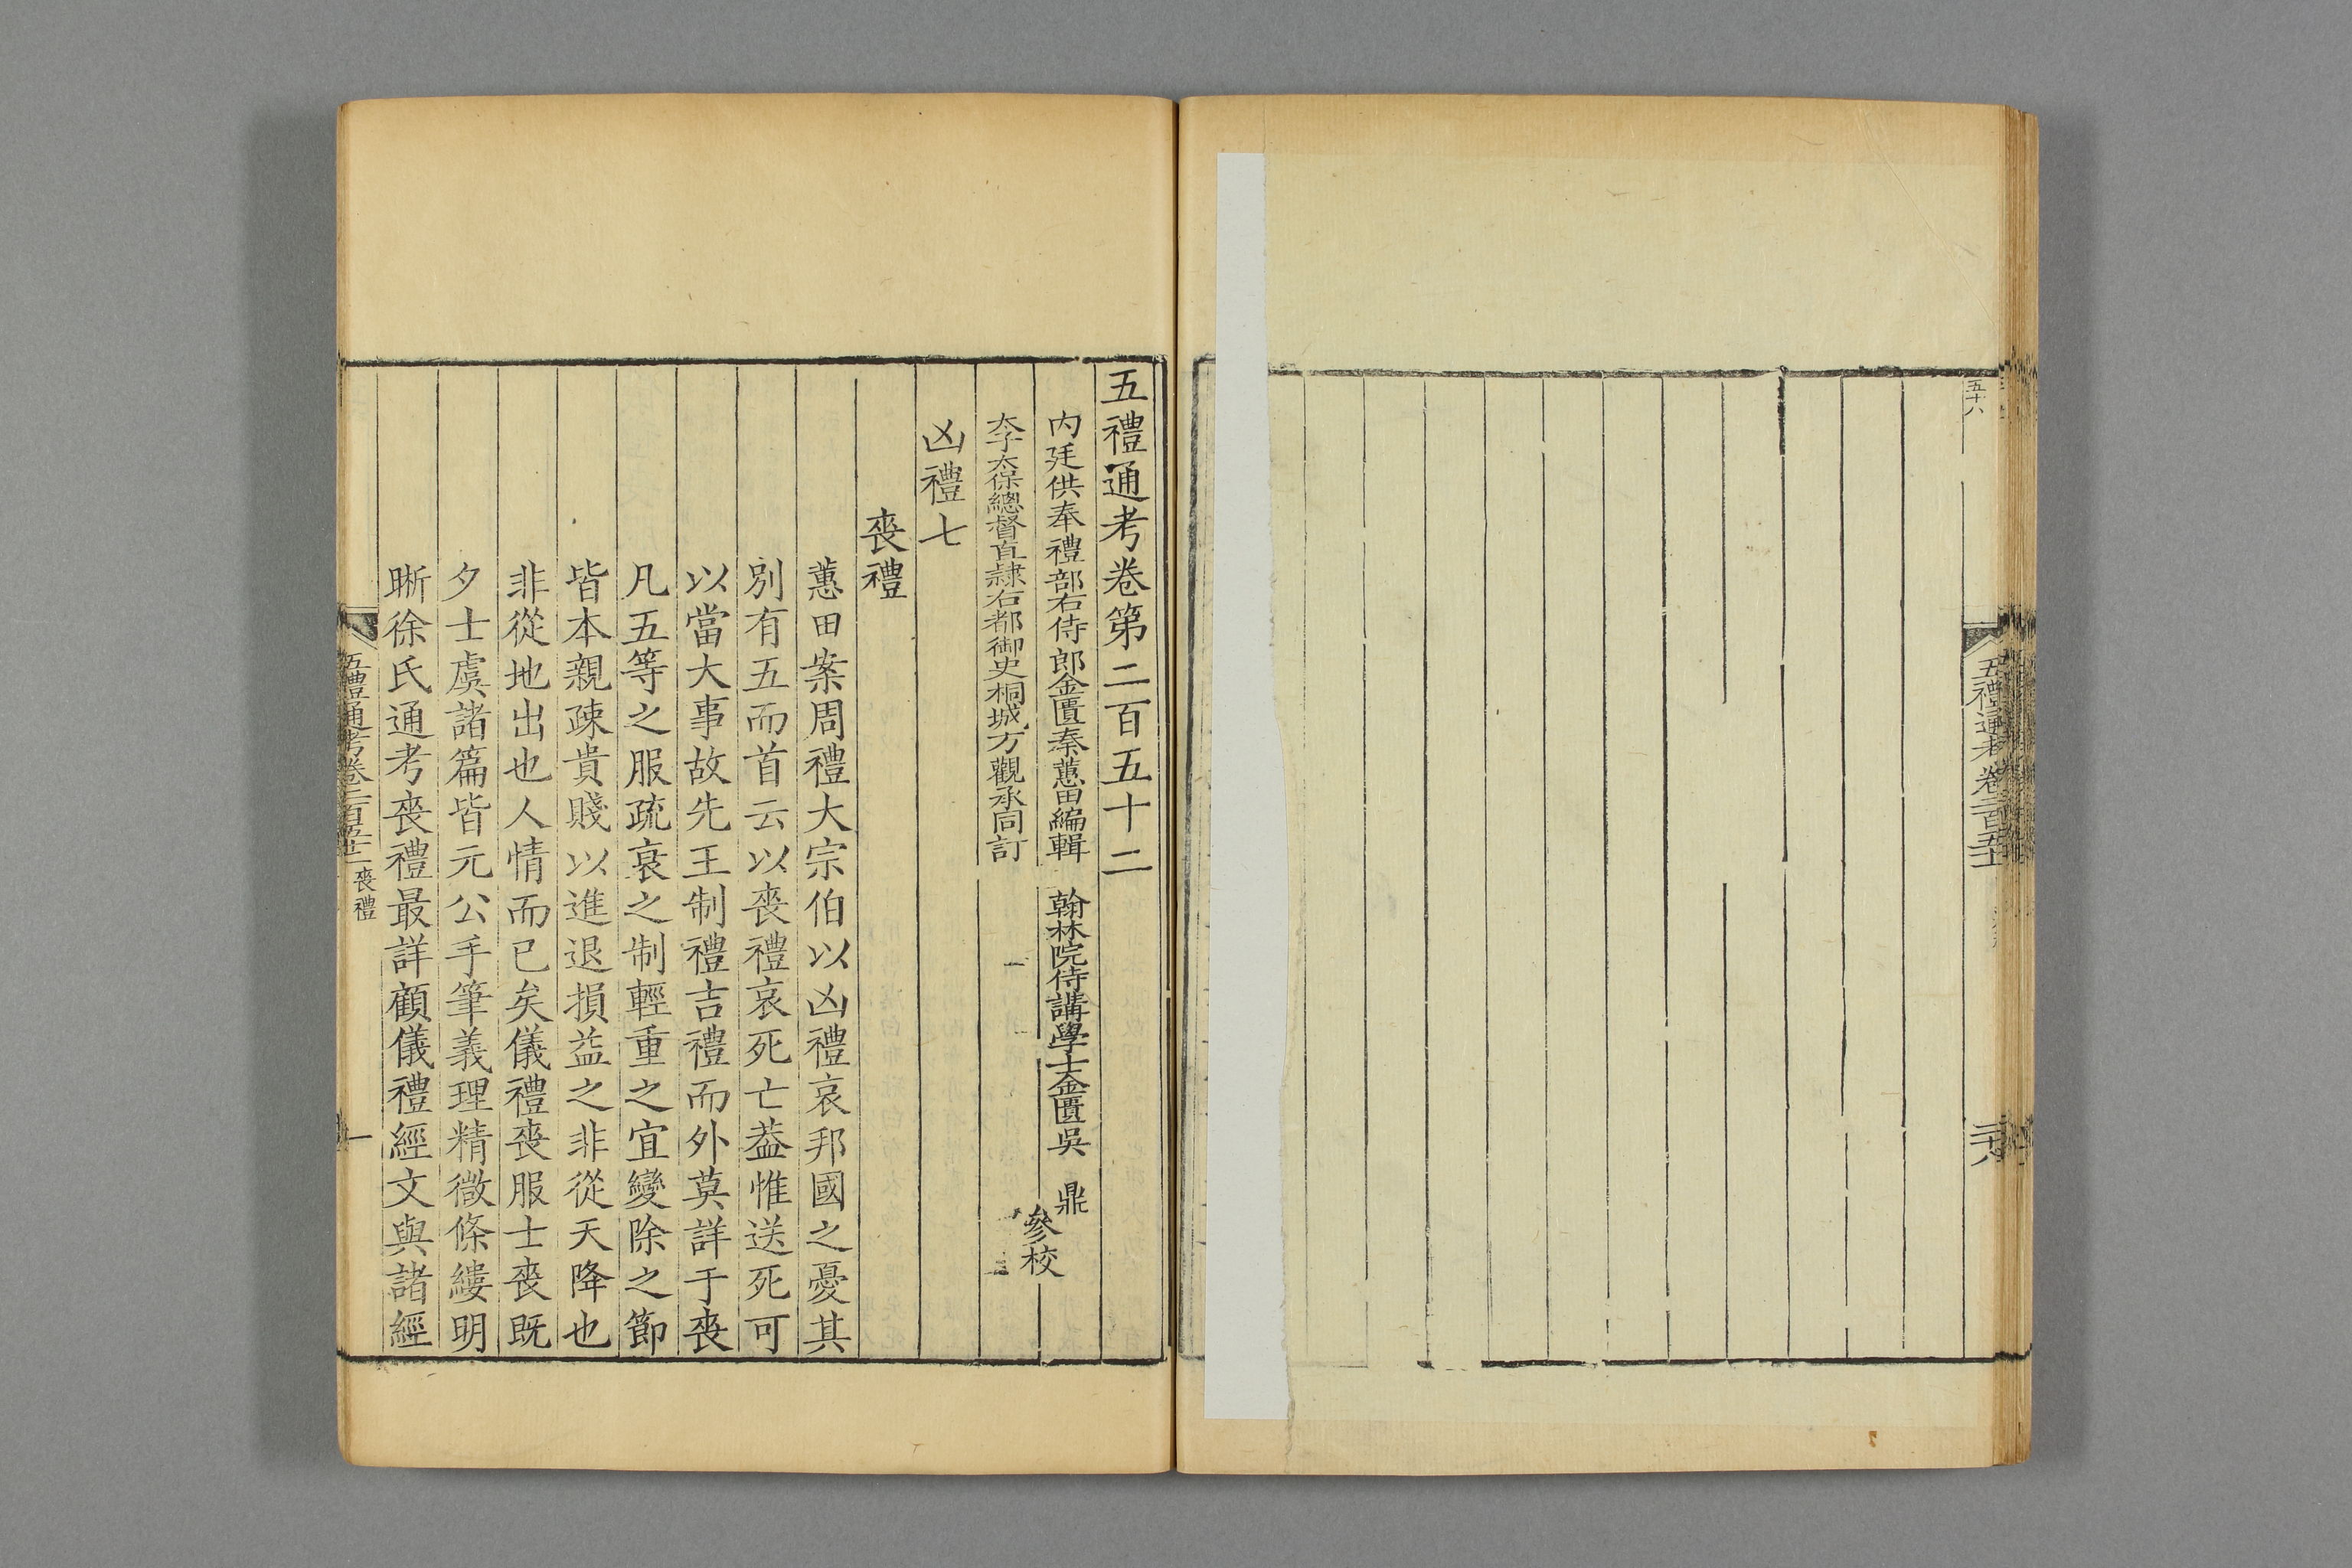 五十八
五禮通考卷二百五十一
二十八
五禮通考卷第二百五十二
内廷供奉禮部右侍郎金匱秦蕙田編輯 翰林院侍講學士金匱吳 鼎
太子太保總督直隸右都御史桐城方觀承同訂 參校
凶禮七
喪禮
蕙田案周禮大宗伯以凶禮哀邦國之憂其
別有五而首云以喪禮哀死亡葢惟送死可
以當大事故先王制禮吉禮而外莫詳于喪
凡五等之服疏衰之制輕重之宜變除之節
皆本親疎貴賤以進退損益之非從天降也
非從地出也人情而已矣儀禮喪服士喪既
夕士虞諸篇皆元公手筆義理精微條縷明
晰徐氏通考喪禮最詳顧儀禮經文與諸經
五禮通考卷二百五十二 喪禮
一